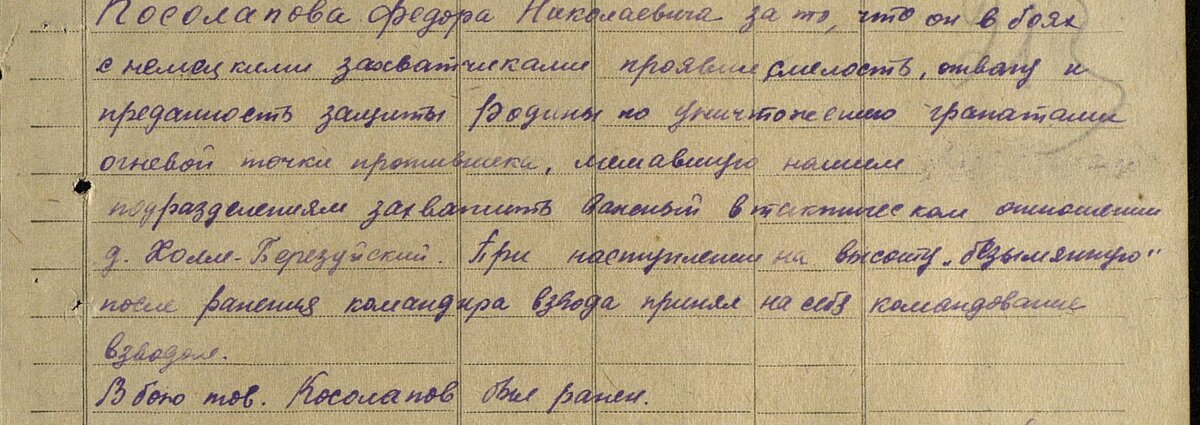 Косолапова Федора Николаевича за то, что он в боях
с немецкими захватчиками проявил смелость, отвагу и
преданность защиты Родины по уничтожению гранатами
огневой точки противника, мешавшую нашим
подразделениям захватить важный в тактическом отношении
д. Холм-Березуйский. При наступлении на высоту "безымянную"
после ранения командира взвода принял на себя командование
взводом.
В бою тов. Косолапов был ранен.